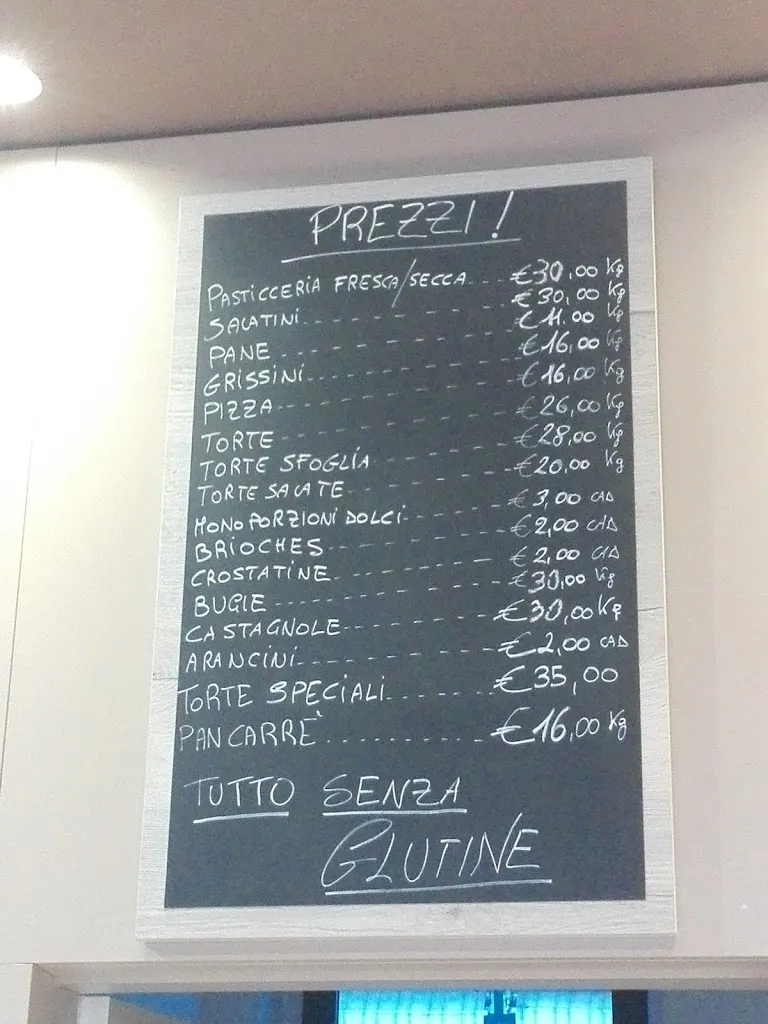 PREZZI!
PASTICCERIA FRESCA/SECCA... €30,00 Kg
SALATINI------- €30,00 Kg
PANE ------- €11.00 Kg
GRISSINI------- €16,00 Kg
PIZZA------- €16,00 Kg
TORTE ------- €26,00 Kg
TORTE SFOGLIA------- €28,00 Kg
TORTE SALATE------- €20,00 Kg
MONOPORZIONI DOLCI------- €3,00 CAD
BRIOCHES------- €2,00 CAD
CROSTATINE------- €2,00 CAD
BUGIE ------- €30,00 Kg
CASTAGNOLE------- €30,00 Kg
ARANCINI------- €2,00 CAD
TORTE SPECIALI....... €35,00
PANCARRÈ ....... €16,00 Kg
TUTTO SENZA
GLUTINE